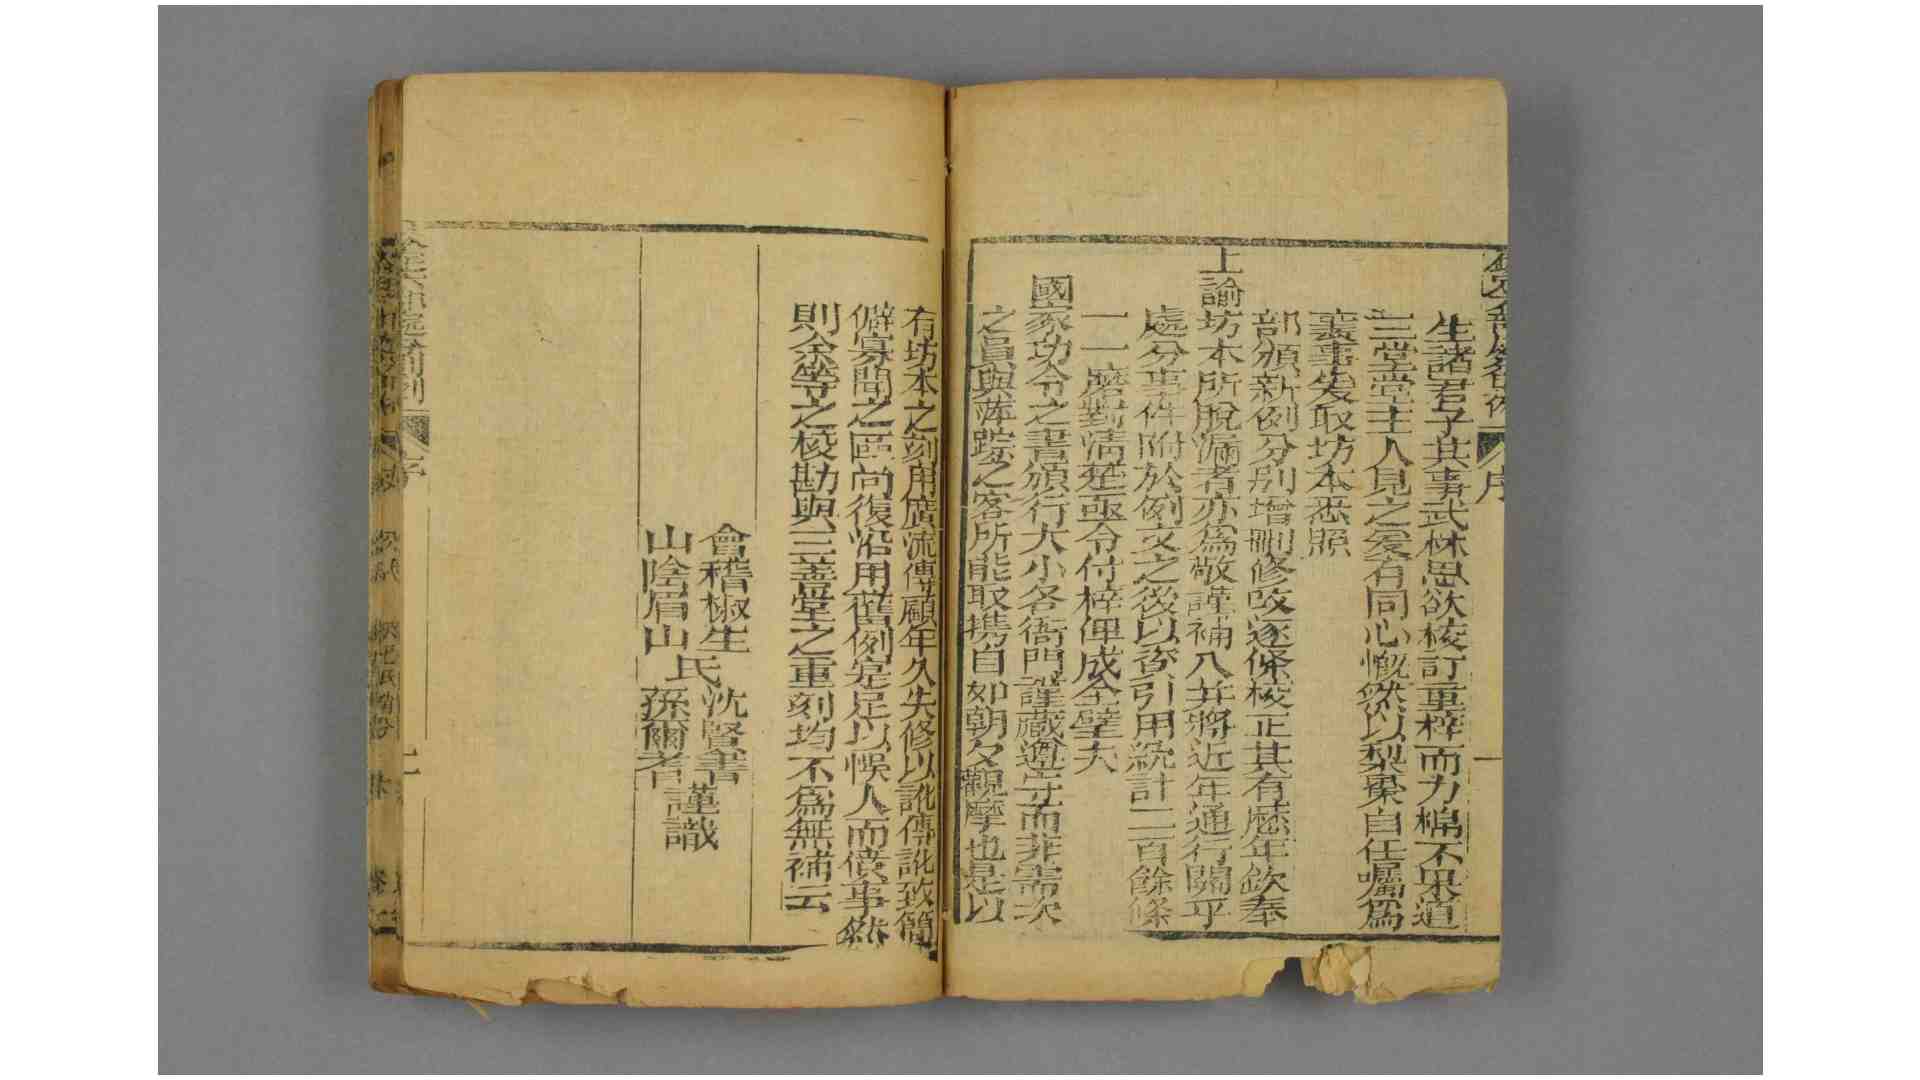 生諸君子其事武林思欲校訂重梓而力棉不果道
三堂堂主人見之爰有同心慨然以梨棗自任囑爲
襄事先取坊本悉照
部頒新例分別增刪修改逐條校正其有歷年欽奉
上諭坊本所脫漏者亦爲敬謹補入并將近年通行關乎
處分事件附於例文之後以資引用統計二百餘條
一一磨對清楚亟令付梓俾成全璧夫
國家功令之書頒行大小各衙門謹藏遵守而非需次
之員與萍踪之客所能取携自如朝夕觀摩也是以
有坊本之刻用廣流傳顧年久失修以訛傳訛致簡
僻寡聞之區尚復沿用舊例寔足以悞人而僨事然
則余等之校勘與三善堂之重刻均不爲無補云
會稽椒生氏沈賢書
山陰眉山氏孫爾耆謹識
序
一
序
二